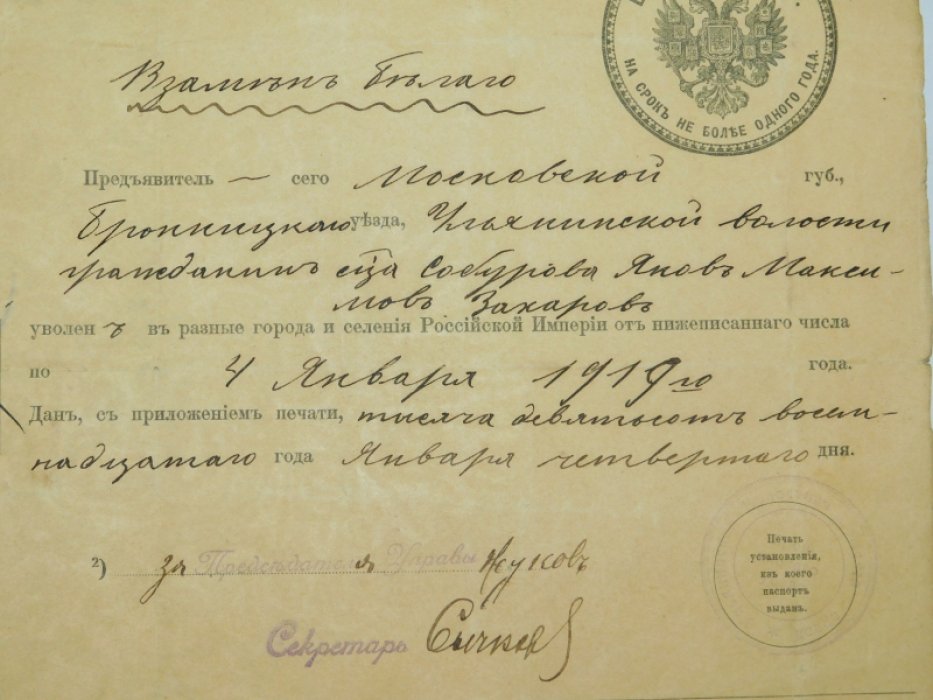 НА СРОКЪ НЕ БОЛѢЕ ОДНОГО ГОДА.
Взамѣнъ бѣлаго
Предъявитель — сего Московской губ.,
Бронницкаго уѣзда, Ульянинской волости
гражданинъ села Собурова Яковъ Макси-
мовъ Захаровъ
уволенъ въ разные города и селенія Россійской Имперіи отъ нижеписаннаго числа
по 4 Января 1919 го года.
Данъ, съ приложеніемъ печати, тысяча девятьсотъ восем-
надцатаго года Января четвертаго дня.
Печать
установленія,
изъ коего
паспортъ
выданъ.
2) за Предсѣдателя Управы Жуковъ
Секретарь